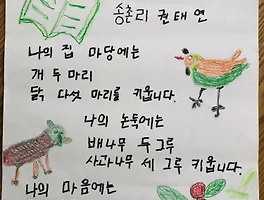 송촌리 권태연
나의 집 마당에는
개 두 마리
닭 다섯 마리를 키웁니다.
나의 논둑에는
배나무 두 그루
사과나무 세 그루 키웁니다.
나의 마음에는